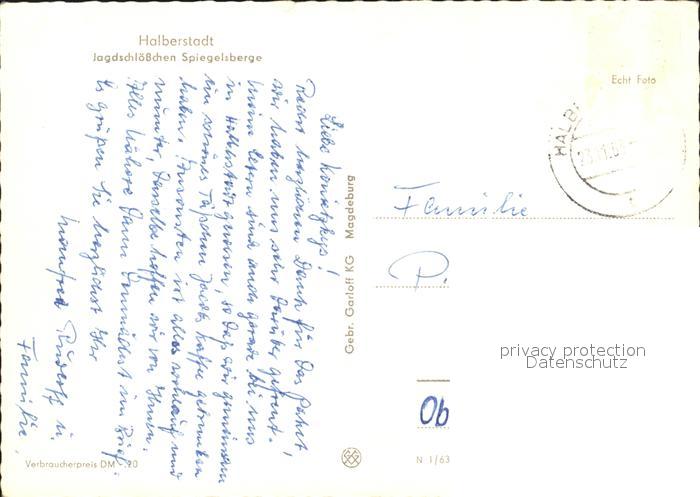 Halberstadt
Jagdschlößchen Spiegelsberge
Echt Foto
HALB
Liebe
Recht herzlichen Dank für das Paket!
Wir haben uns sehr darüber gefreut.
Meine Eltern sind auch gerade bei uns
in Halberstadt gewesen, so daß wir gemeinsam
ein schönes Täßchen Jacobs Kaffee getrunken
haben. Ansonsten ist alles wohlauf und
munter, dasselbe hoffen wir von Ihnen.
Alles Nähere dann demnächst im Brief.
Es grüßen Sie herzlichst Ihr
Manfred u.
Familie.
Verbraucherpreis DM -.20
Gebr. Garloff KG Magdeburg
Familie
P.
privacy protection
Datenschutz
Ob
N 1/63